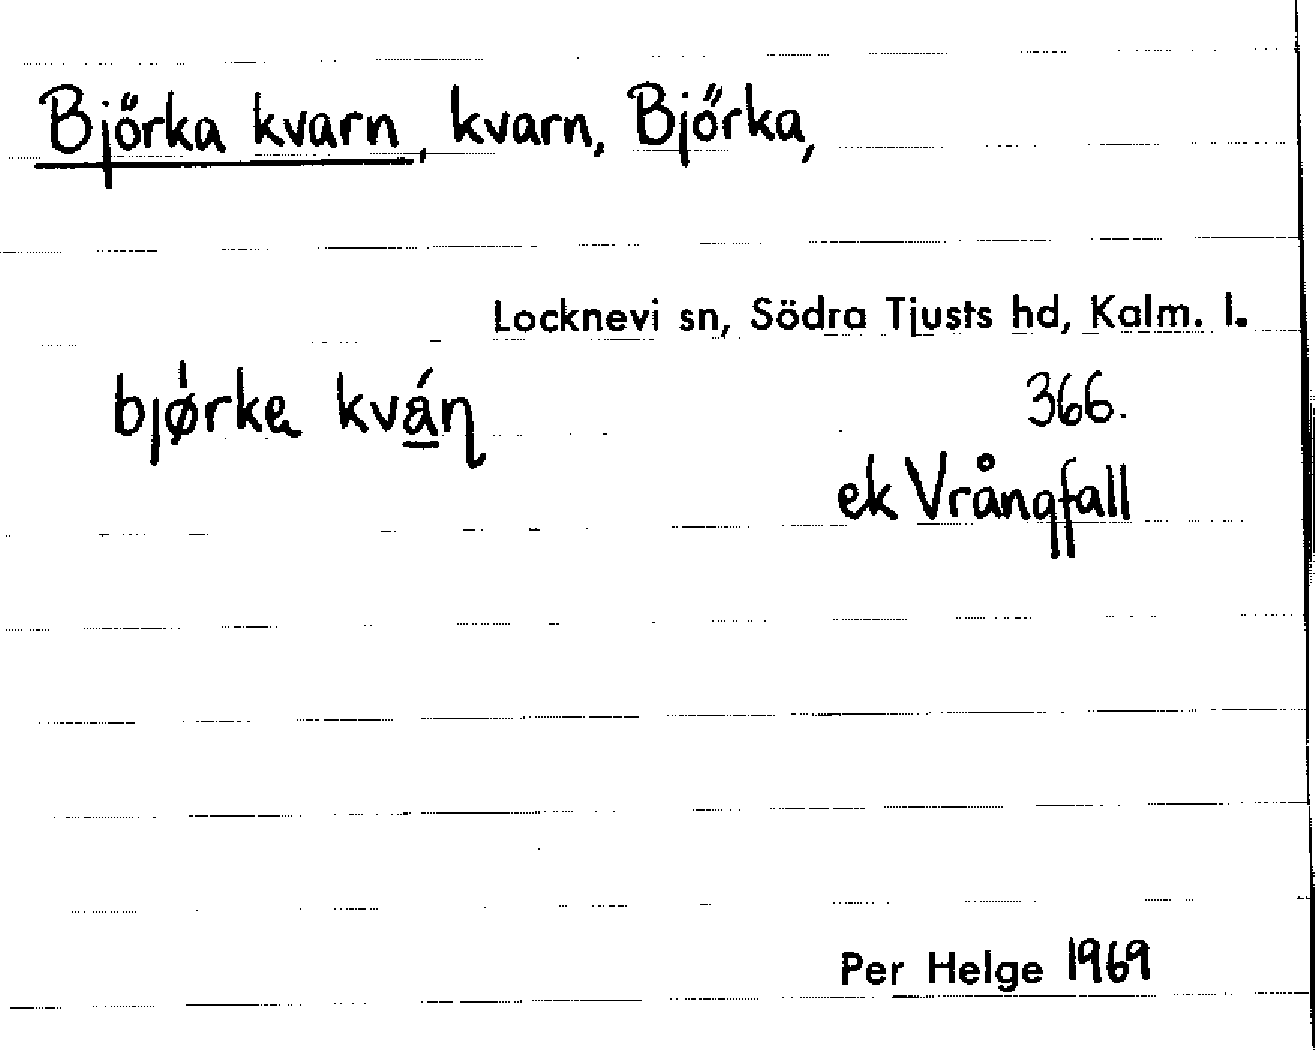 Björka kvarn, kvarn, Björka,
Locknevi sn, Södra Tjusts hd, Kalm. l.
bjørka kván
366.
ek Vrångfall
Per Helge 1969